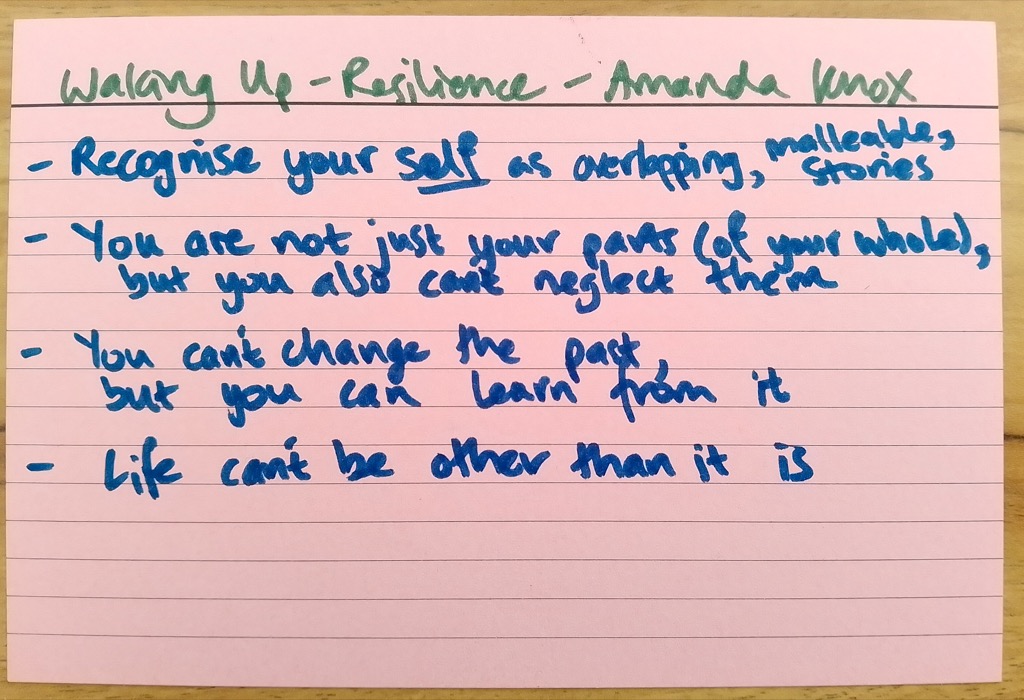 Waking Up - Resilience - Amanda Knox
- Recognise your self as overlapping, malleable, stories
- You are not just your parts (of your whole),
but you also can't neglect them
- You can't change the past,
but you can learn from it
- Life can't be other than it is